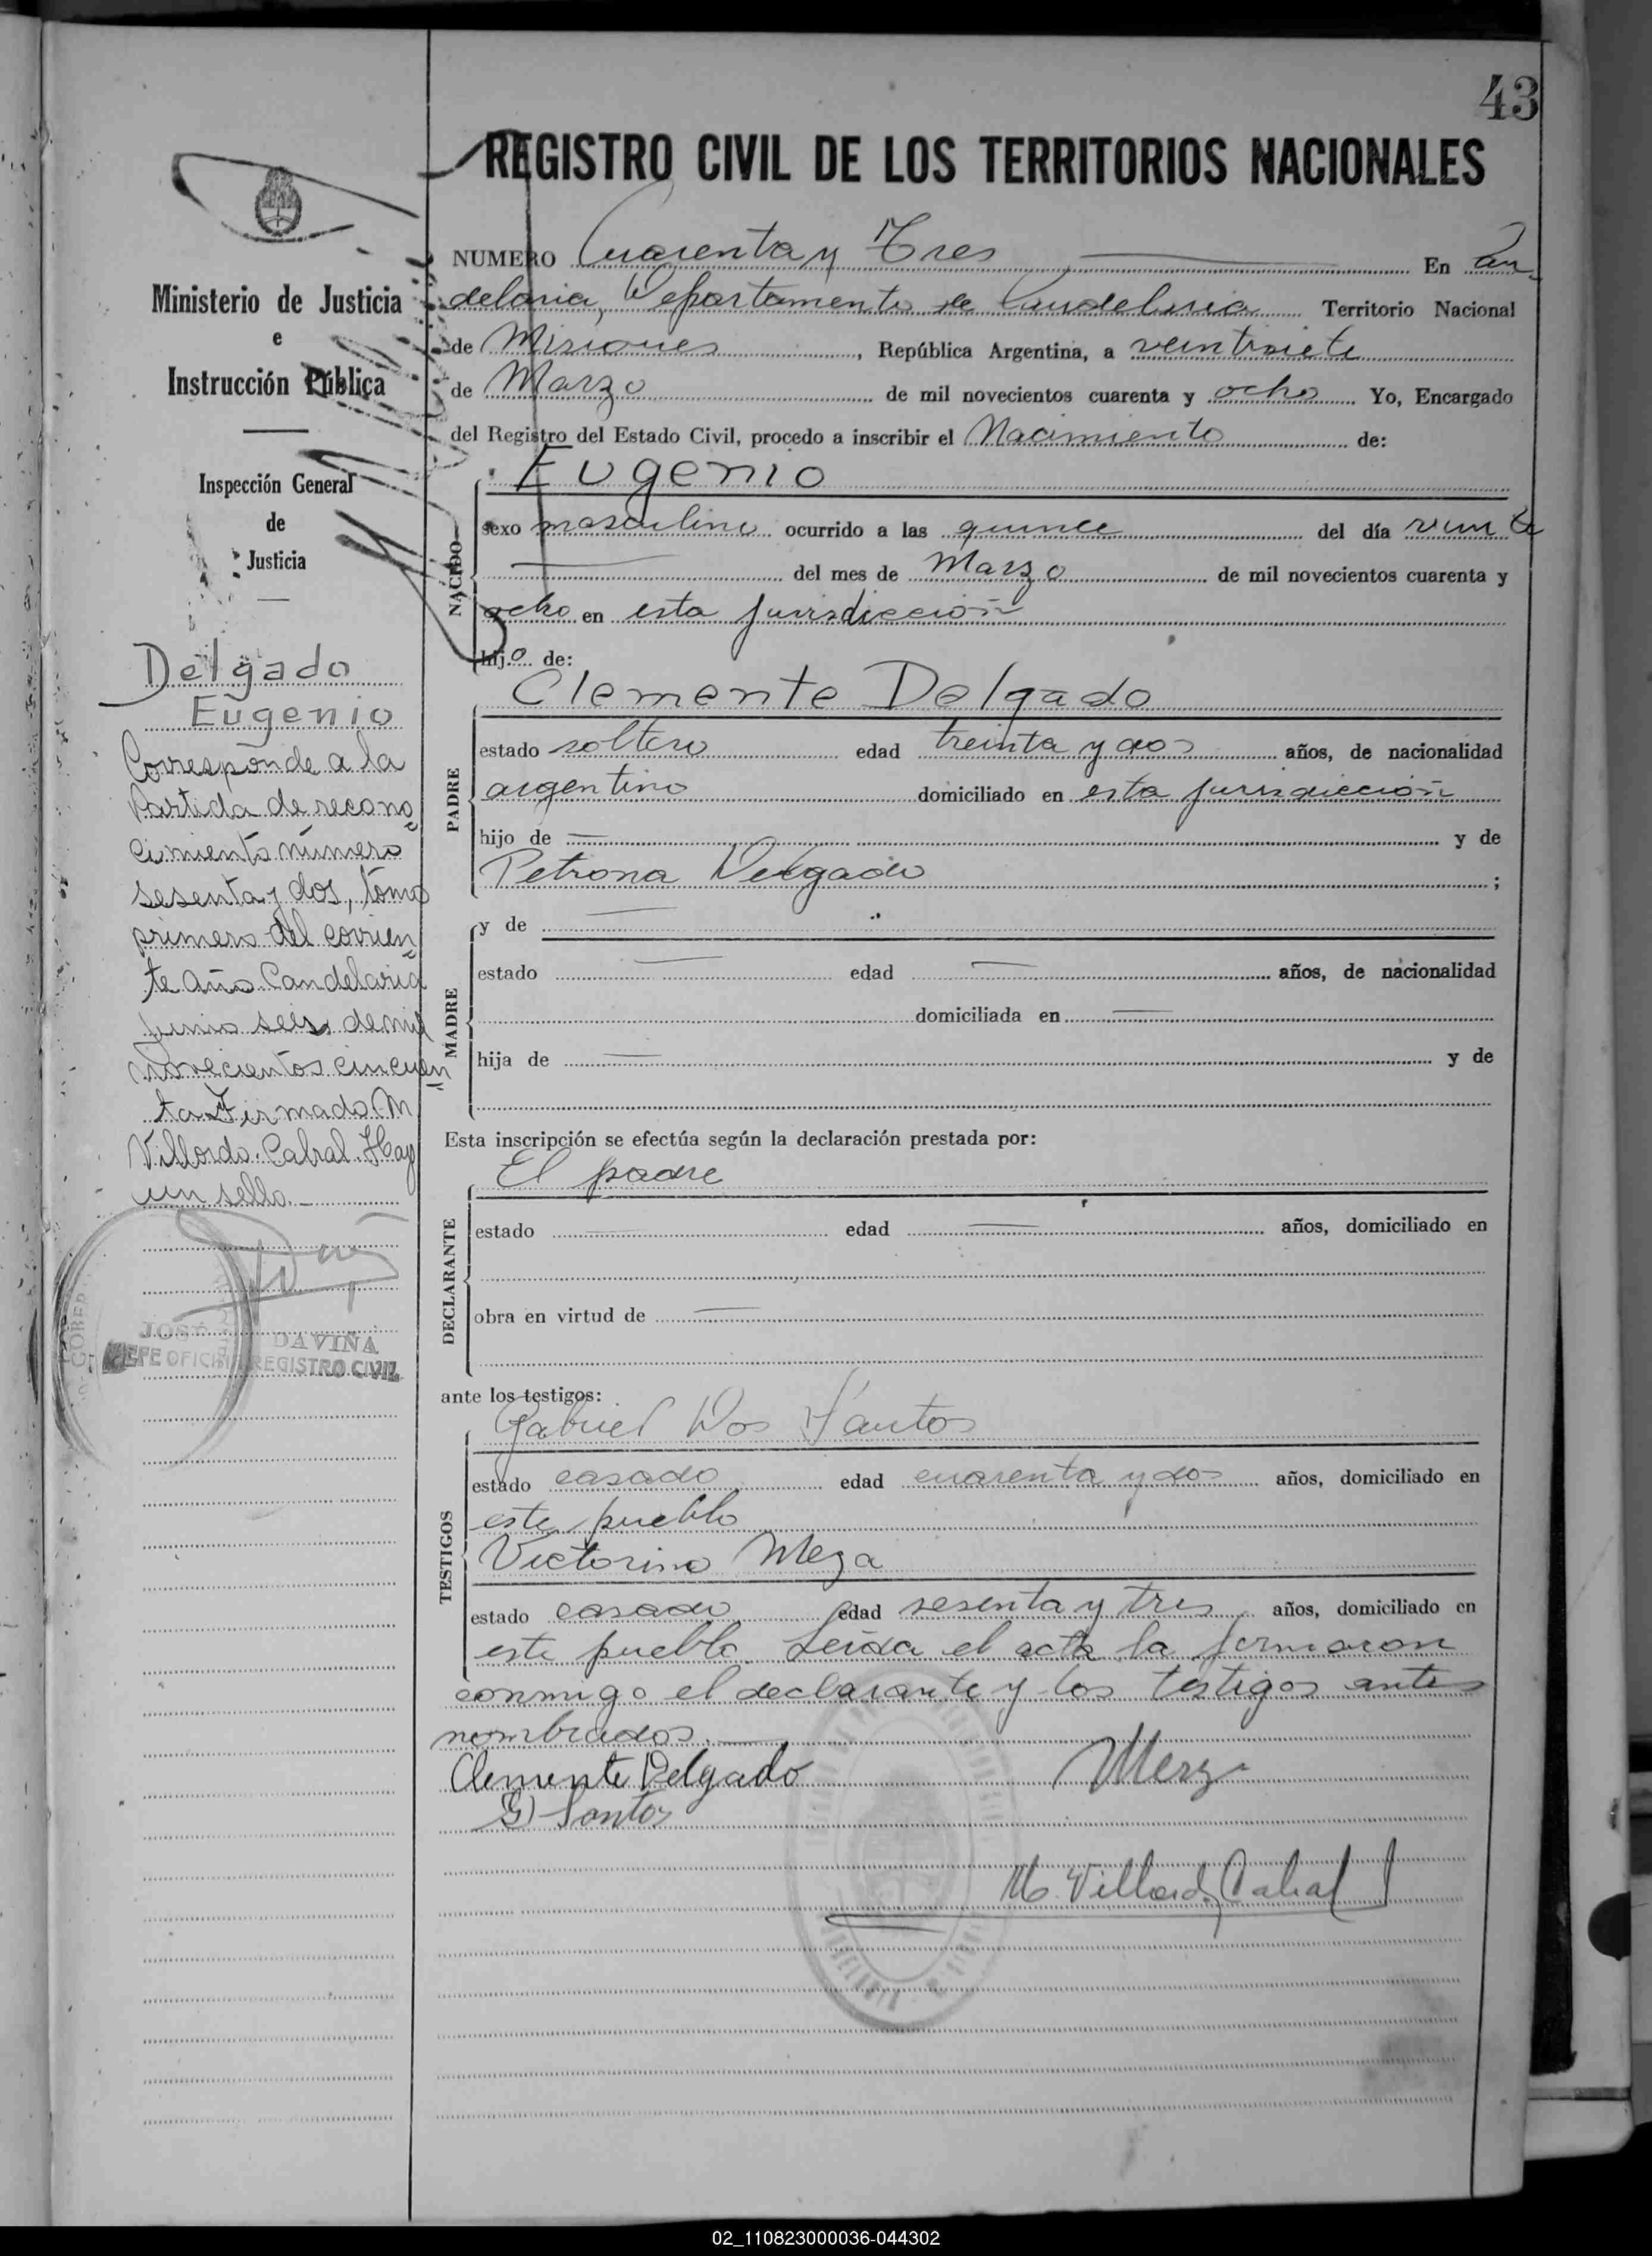 43
REGISTRO CIVIL DE LOS TERRITORIOS NACIONALES
Ministerio de Justicia
e
Instrucción Pública
Inspección General
de
Justicia
Delgado
Eugenio
Corresponde a la
Partida de recono
cimiento número
sesenta y dos, tomo
primero del corrien
te año. Candelaria
junio seis de mil
novecientos cincuen
ta. Firmado. M
Villordo Cabral. Hay
un sello.
GOBER
JOSÉ DAVIÑA
JEFE OFICINA REGISTRO CIVIL
NUMERO Cuarenta y Tres En Can-
delaria, Departamento de Candelaria Territorio Nacional
de Misiones, República Argentina, a veintisiete
de Marzo de mil novecientos cuarenta y ocho. Yo, Encargado
del Registro del Estado Civil, procedo a inscribir el Nacimiento de:
Eugenio
NACIDO
sexo masculino ocurrido a las quince del día veinte
del mes de Marzo de mil novecientos cuarenta y
ocho en esta jurisdicción
hijo de:
Clemente Delgado
PADRE
estado soltero edad treinta y dos años, de nacionalidad
argentino domiciliado en esta jurisdicción
hijo de y de
Petrona Delgado ;
MADRE
y de
estado edad años, de nacionalidad
domiciliada en
hija de y de
Esta inscripción se efectúa según la declaración prestada por:
El padre
DECLARANTE
estado edad años, domiciliado en
obra en virtud de
ante los testigos:
Gabriel Dos Santos
TESTIGOS
estado casado edad cuarenta y dos años, domiciliado en
este pueblo
Victorino Meza
estado casado edad sesenta y tres años, domiciliado en
este pueblo. Leida el acta la firmaron
conmigo el declarante y los testigos antes
nombrados.
Clemente Delgado Meza
G D Santos
M. Villordo Cabral
02_110823000036-044302